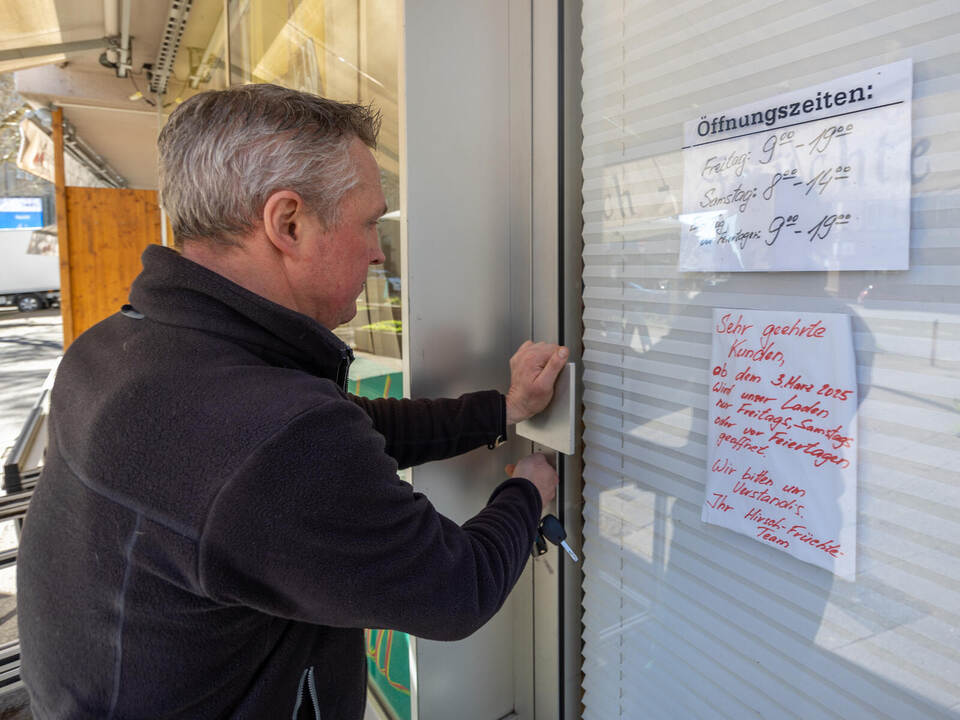 Öffnungszeiten:
Freitag: 9⁰⁰ - 19⁰⁰.
Samstag: 8⁰⁰ - 14⁰⁰.
vor Feiertagen: 9⁰⁰ - 19⁰⁰.
Sehr geehrte
Kunden,
ab dem 3. März 2025
Wird unser Laden
nur Freitags, Samstags
oder vor Feiertagen
geöffnet.
Wir bitten um
Verständis.
Ihr Hirsch-Früchte-
Team